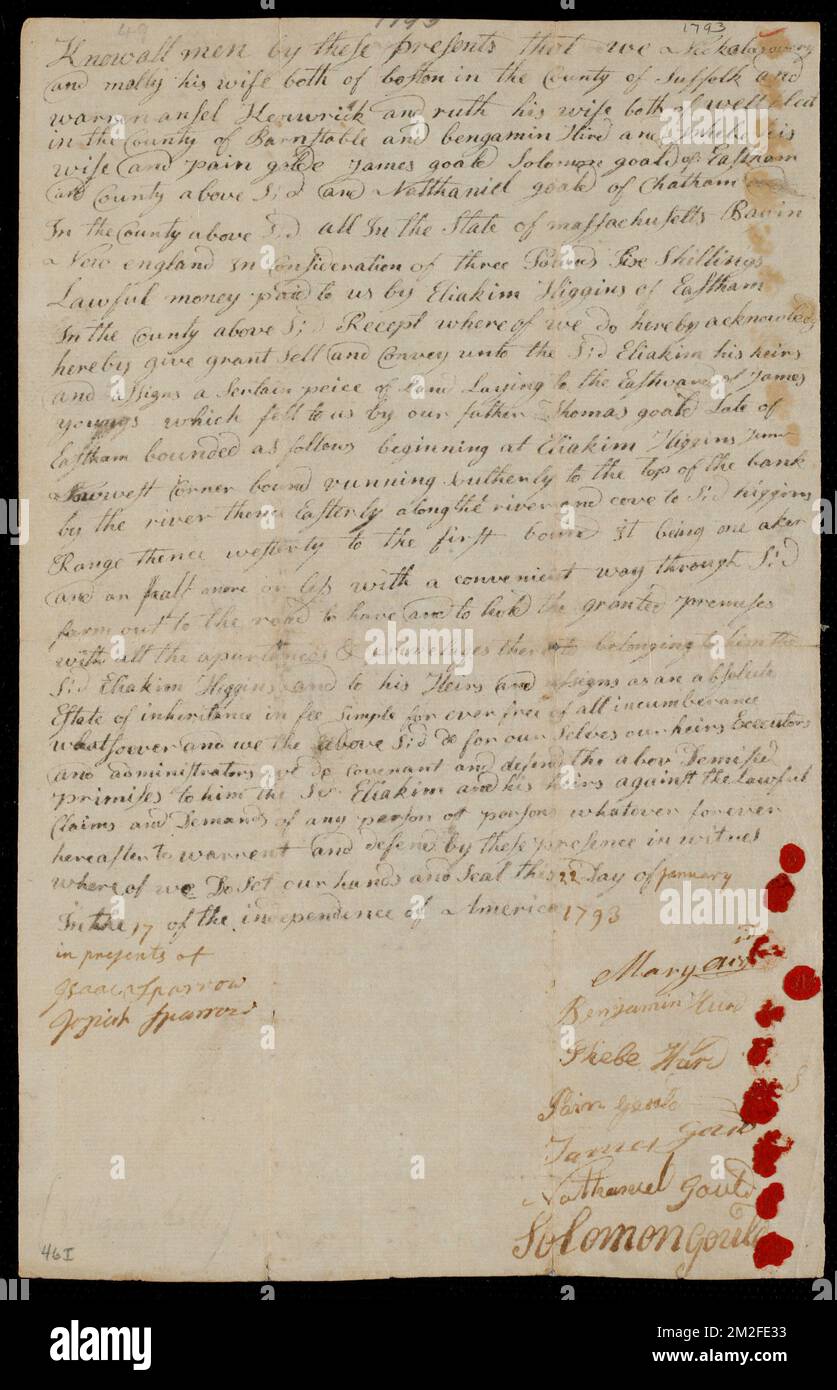 1793
1793
Know all men by these presents that we
and molly his wife both of boston in the County of Suffolk and
warren ansel Kenwrick and ruth his wife both of wellfleet
in the County of Barnstable and bengamin Hird and his
wife and pain goald James goald Solomon goald of Eastham
and County above S;d and Natthaniel goald of Chatham
In the County above S;d all In the State of massachusetts
New england in Consideration of three Pounds Six Shillings
Lawful money paid to us by Eliakim Higgins of Eastham
In the County above S;d Recept where of we do hereby acknowledg
hereby give grant sell and Convey unto the S;d Eliakim his heirs
and assigns a Sertain peice of Land Laying to the Eastward of James
youngs which fell to us by our father Thomas goald Late of
Eastham bounded as follows beginning at Eliakim Higgins Junr
Corner bound running Sutherly to the top of the bank
by the river thence Easterly along the river and cove to S;d higgins
Range thence westerly to the first bound it being one aker
and an half more or less with a convenient way through S;d
farm out to the road to have and to hold the granted premises
with all the & thereto belonging to him the
S;d Eliakim Higgins and to his Heirs and assigns as an absolute
Estate of inheritance in fee simple for ever free of all incumberance
whatsoever and we the above S;d do for our selves our heirs Executors
and administrators do covenant and defend the abov Demised
primises to him the Eliakim and his heirs against the Lawful
Claims and Demands of any person or parsons whatever forever
hereafter to warrent and defend by these presence in witnes
where of we Do Set our hands and Seal this 22 Day of january
In the 17 of the independence of America 1793
in presents of
Isaac Sparrow
Josiah Sparrow
Mary
Benjamin Hurd
Phebe Hurd
Pain Gould
James Gould
Nathaniel Gould
Solomon Gould
46I
alamy
Image ID: 2M2FE33
www.alamy.com